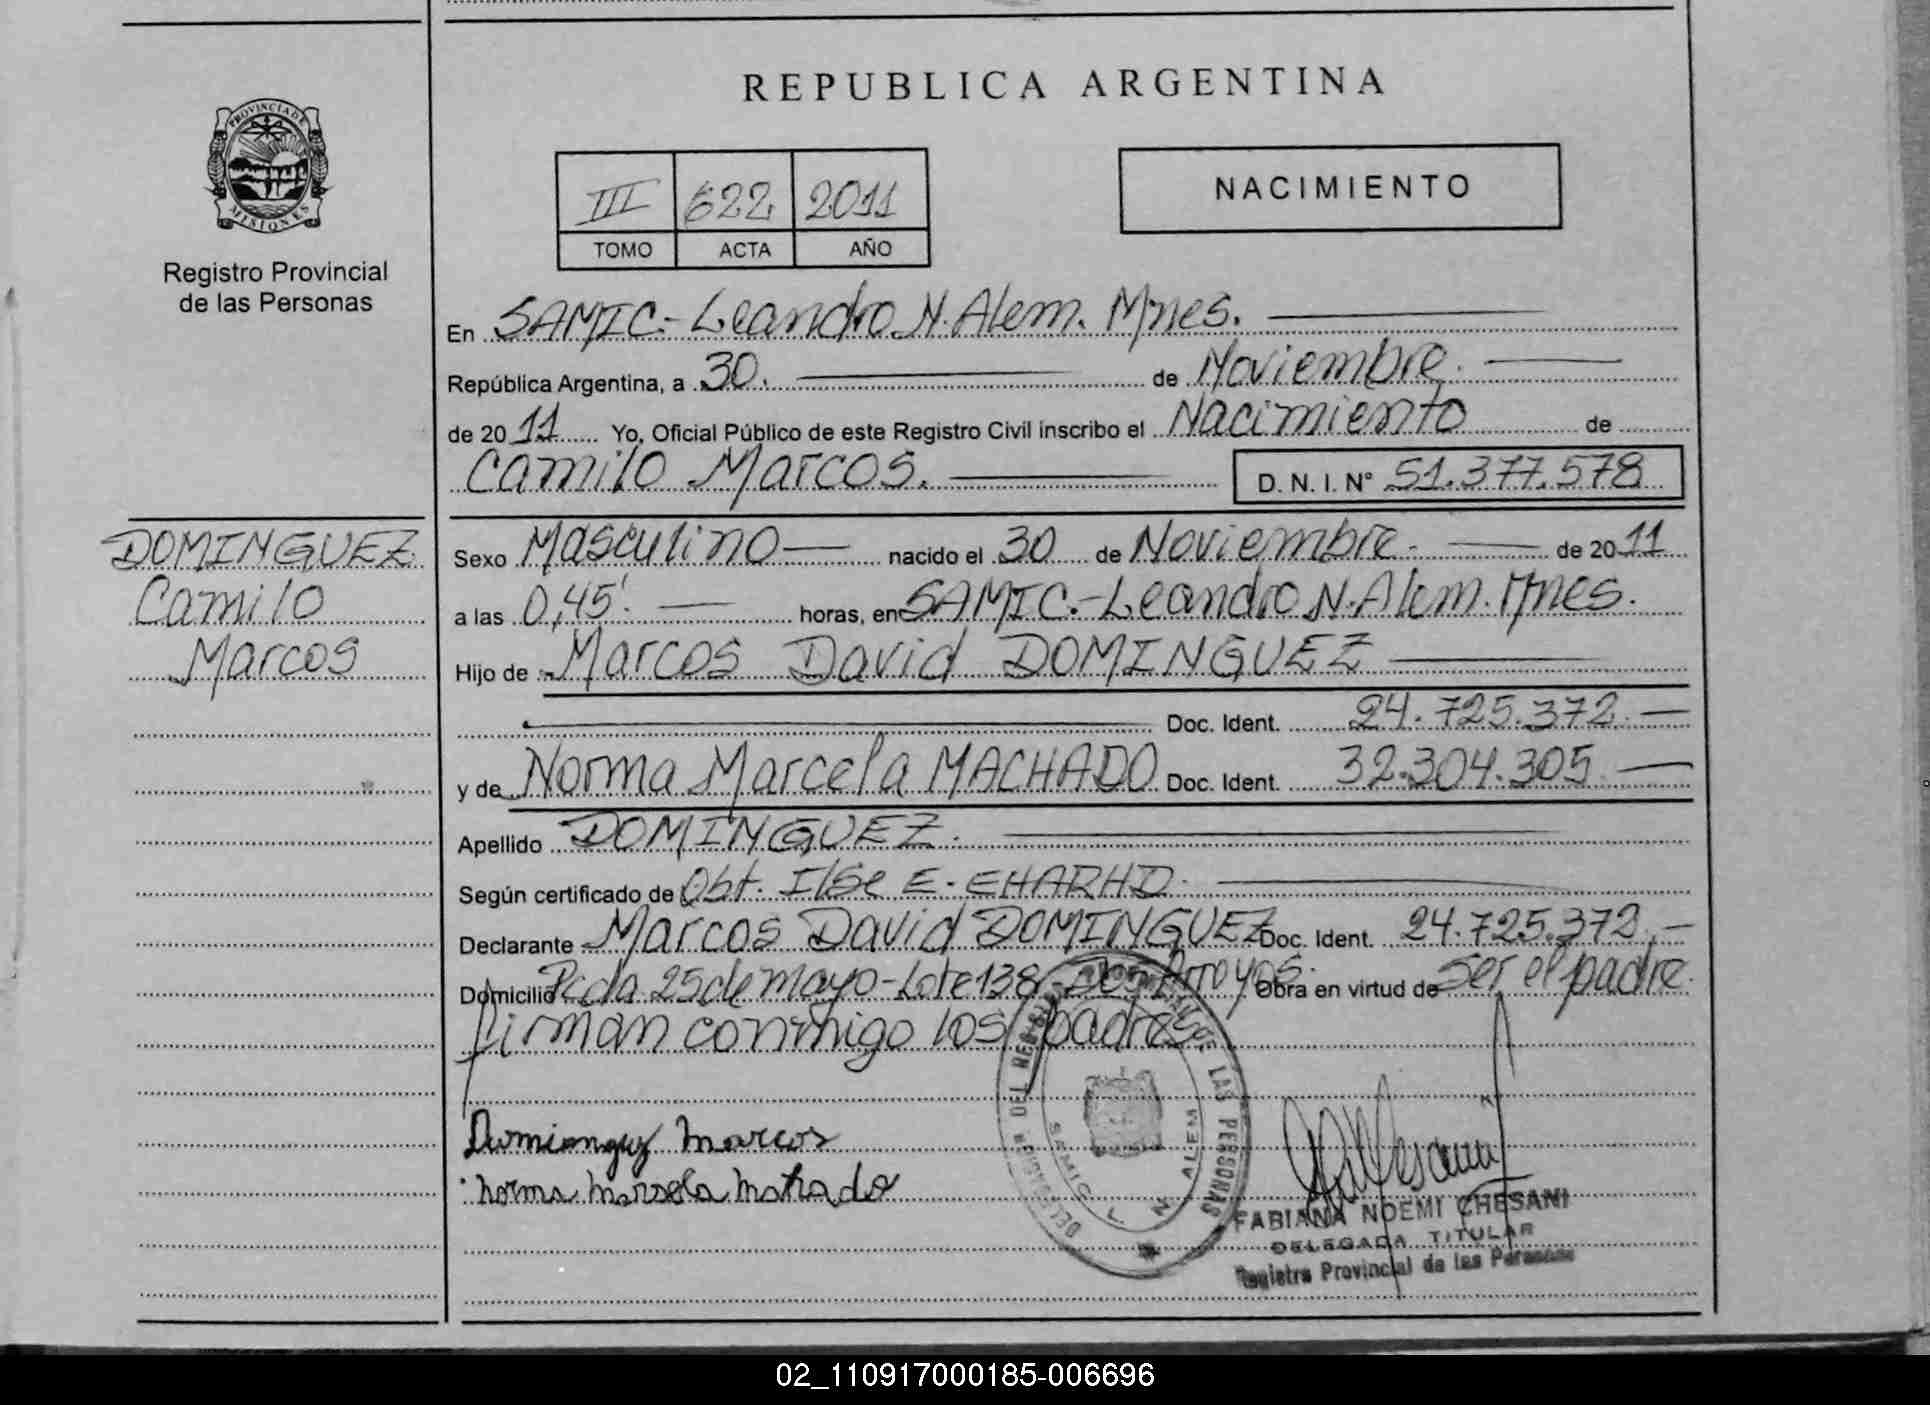 REPUBLICA ARGENTINA
PROVINCIA DE
MISIONES
Registro Provincial
de las Personas
III 622 2011
TOMO ACTA AÑO
NACIMIENTO
En SAMIC.- Leandro N. Alem. Mnes.
República Argentina, a 30. de Noviembre.
de 20 11 Yo, Oficial Público de este Registro Civil inscribo el Nacimiento de
Camilo Marcos. D. N. I. N° 51.377.578
DOMINGUEZ
Camilo
Marcos
Sexo Masculino nacido el 30 de Noviembre. de 20 11
a las 0,45'. horas, en SAMIC.- Leandro N. Alem. Mnes.
Hijo de Marcos David DOMINGUEZ
Doc. Ident. 24.725.372.
y de Norma Marcela MACHADO Doc. Ident. 32.304.305
Apellido DOMINGUEZ.
Según certificado de Obt. Ilse E. EHARHD.
Declarante Marcos David DOMINGUEZ Doc. Ident. 24.725.372.
Domicilio Pcda 25 de Mayo - Lote 138 - Dos Arroyos. Obra en virtud de ser el padre.
Firman conmigo los padres.
Domianguz marcos
norma marsela mathado
DEL REGISTRO DE LAS PERSONAS
SAMIC L N ALEM
FABIANA NOEMI CHESANI
DELEGADA TITULAR
Registro Provincial de las Personas
02_110917000185-006696